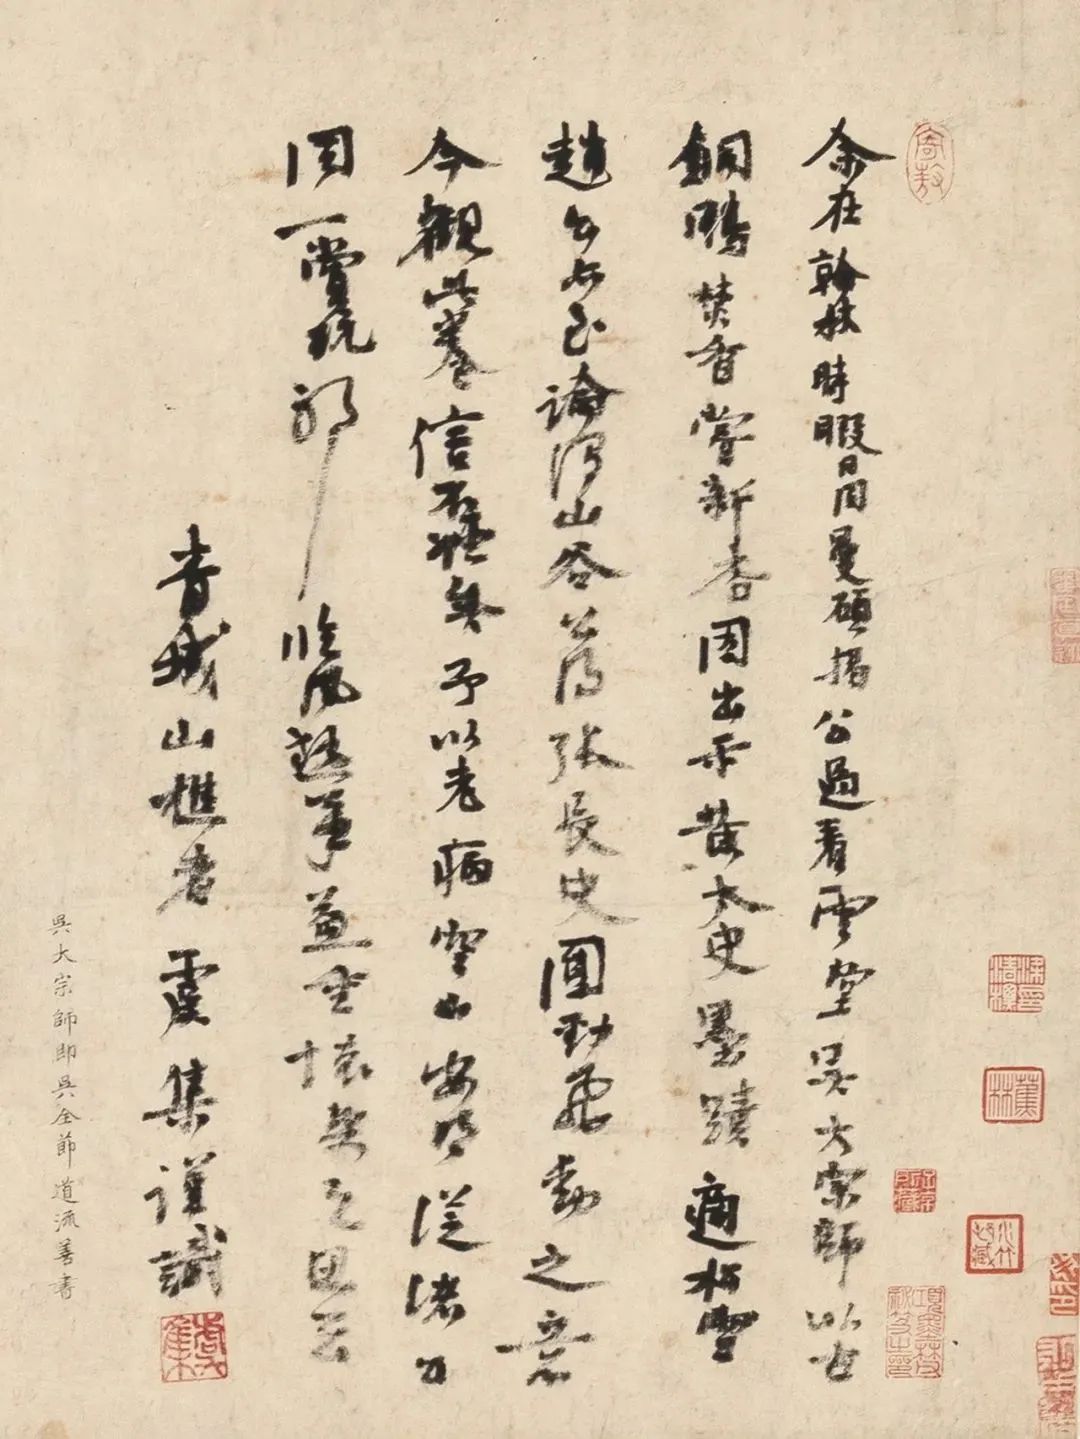 余在翰林時暇日同曼碩揭公過看雲堂吳大宗師以古
銅鴨焚香嘗新杏因出示黃太史墨蹟適松雪
趙公亦至論得山谷公得張長史圓勁飛動之意
今觀此卷信不誣矣予以老病空山安得從諸公
同一賞玩耶臨風題筆益
懷矣之思云
青城山樵者虞集謹識
虞集
吳大宗師即吳全節道流善書
蕉林